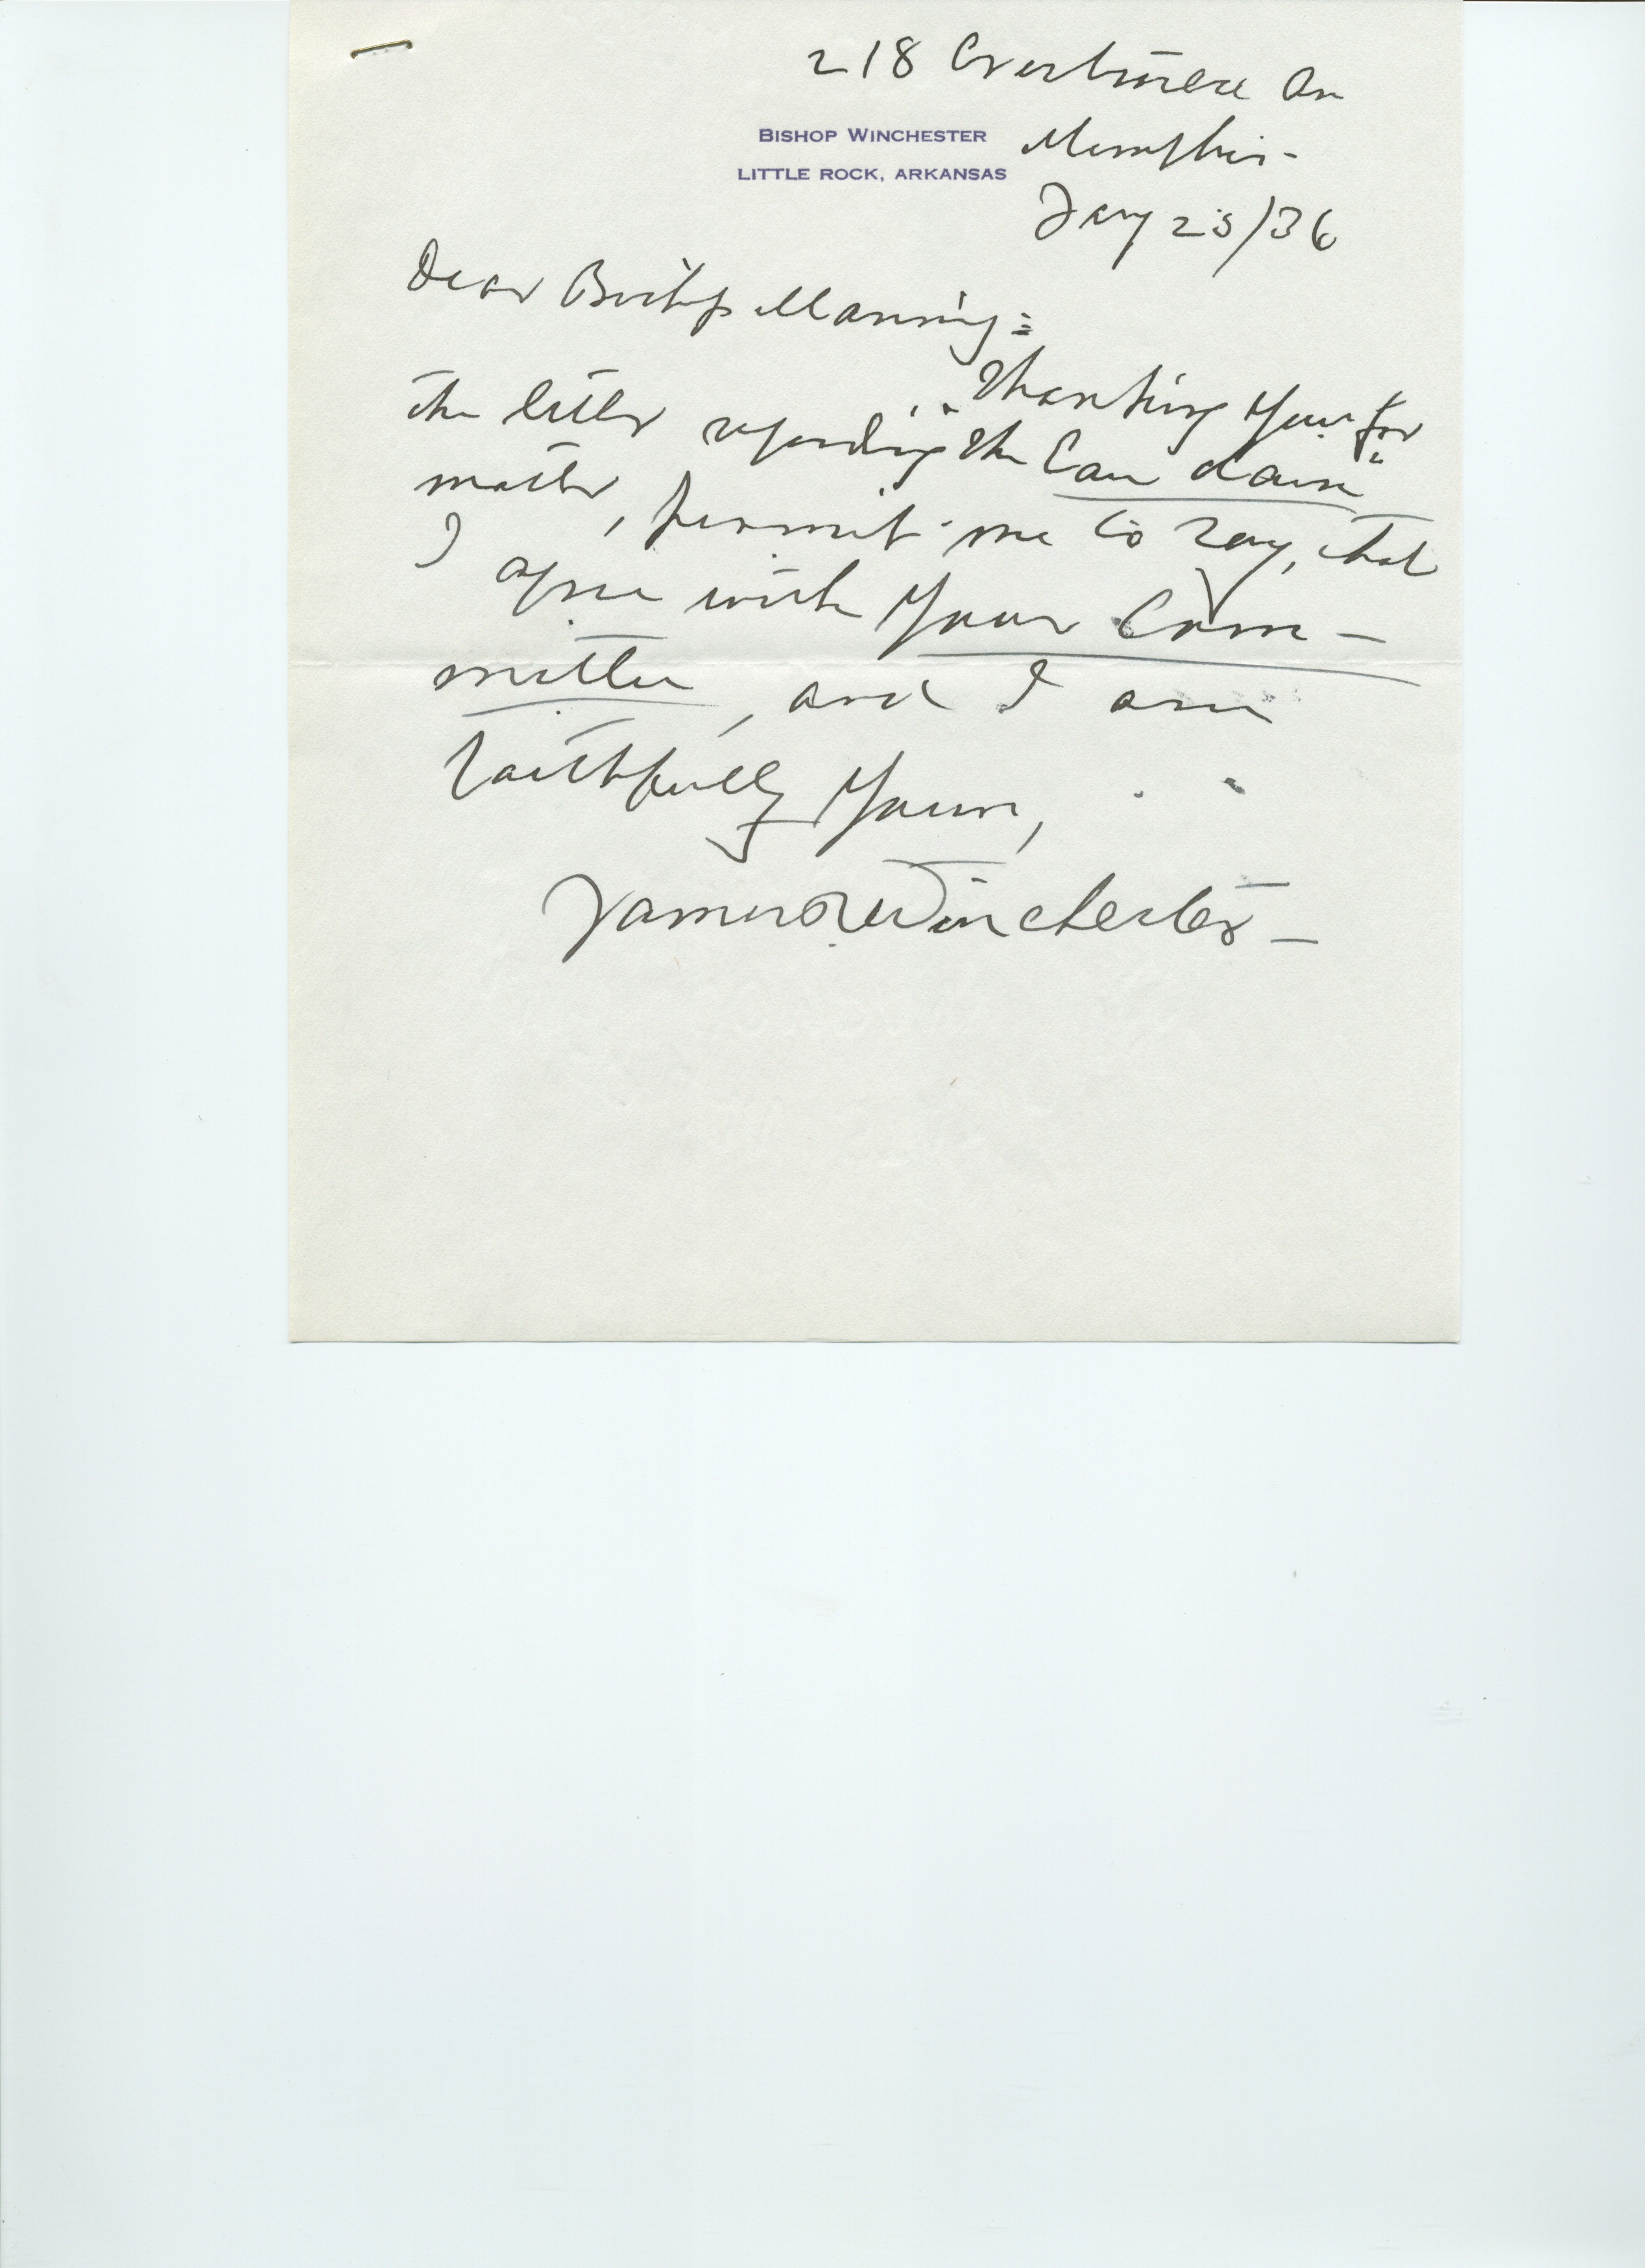 218 Crestmere Av
BISHOP WINCHESTER
LITTLE ROCK, ARKANSAS
Memphis -
Jany 25/36
Dear Bishop Manning:
Thanking you for
the letter regarding the
matter, permit me to say, that
I agree with your Com-
mittee, and I am
Faithfully Yours,
James R Winchester -